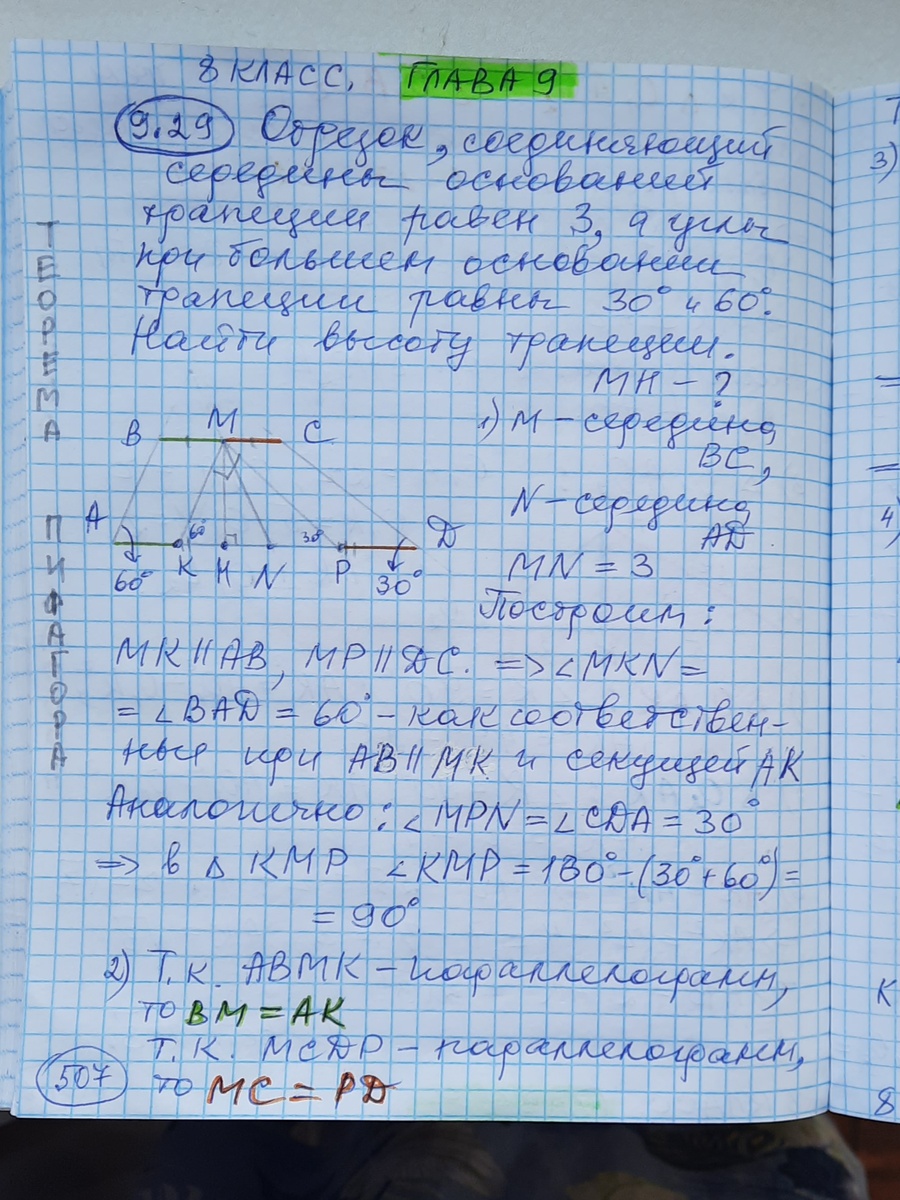 8 КЛАСС. ГЛАВА 9
9.29 Отрезок, соединяющий
середины оснований
трапеции равен 3, а углы
при большем основании
трапеции равны 30° и 60°.
Найти высоту трапеции.
ТЕОРЕМА ПИФАГОРА
MH - ?
1) M - середина
BC,
N - середина
AD
MN = 3
Построим:
B M C
A 60° K 60° H N 30° P 30° D
MK || AB, MP || DC. => ∠MKN =
= ∠BAD = 60° - как соответствен-
ные при AB || MK и секущей AK
Аналогично: ∠MPN = ∠CDA = 30°
=> в △ KMP ∠KMP = 180° - (30° + 60°) =
= 90°
2) Т.к. ABMK - параллелограмм,
то BM = AK
Т.К. MCDP - параллелограмм,
то MC = PD
507
3)
=
=
4)
К
8